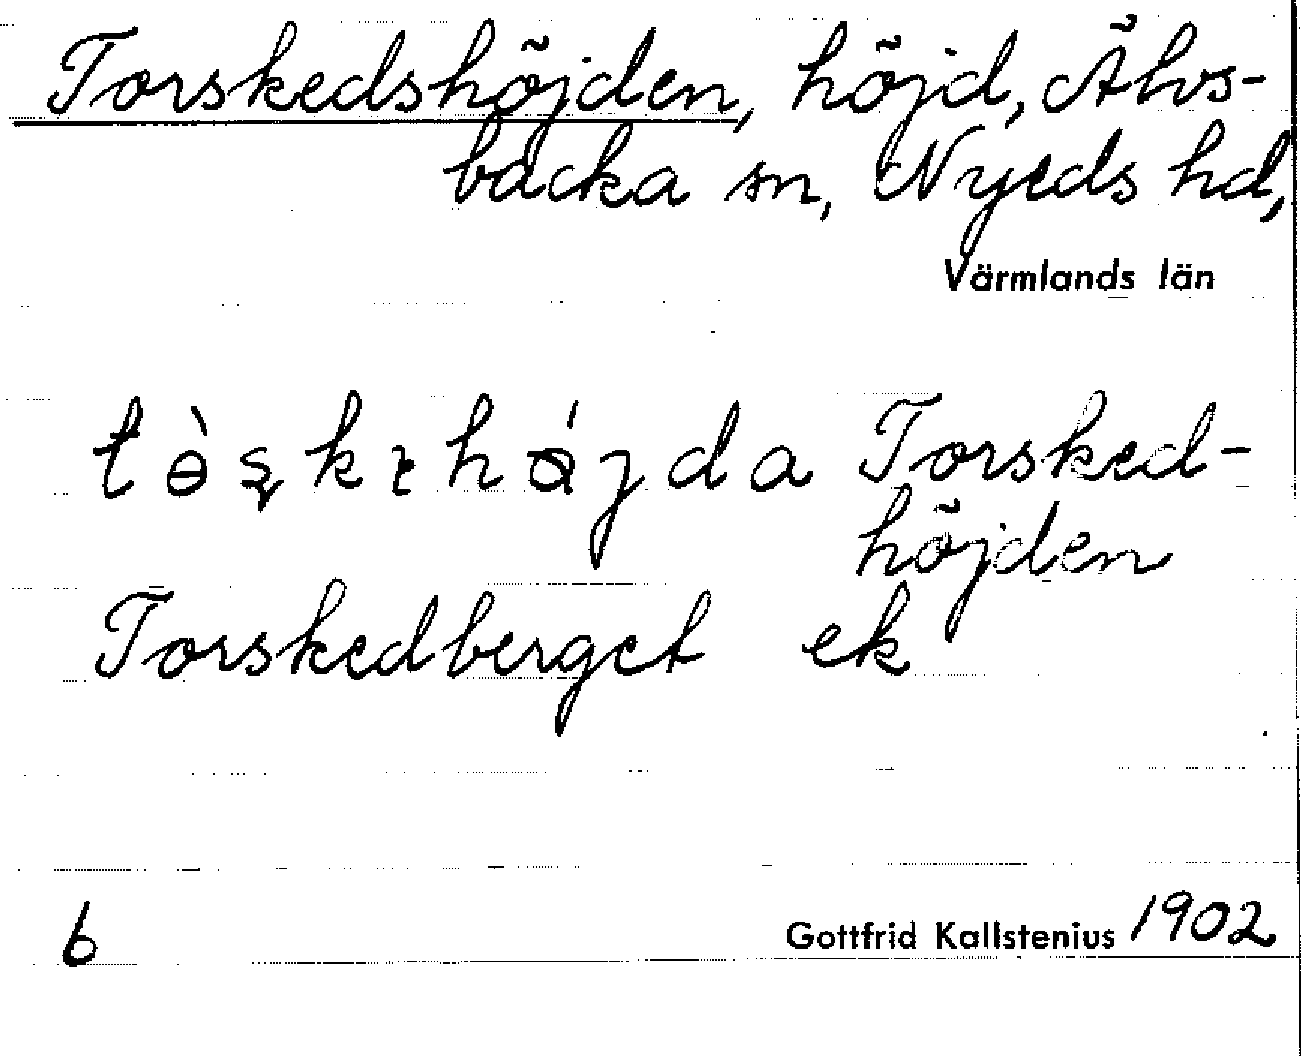 Torskedshöjden, höjd, Älvs-
backa sn, Nyeds hd,
Värmlands län
Torsked-
höjden
Torskedberget ek
6 Gottfrid Kallstenius 1902